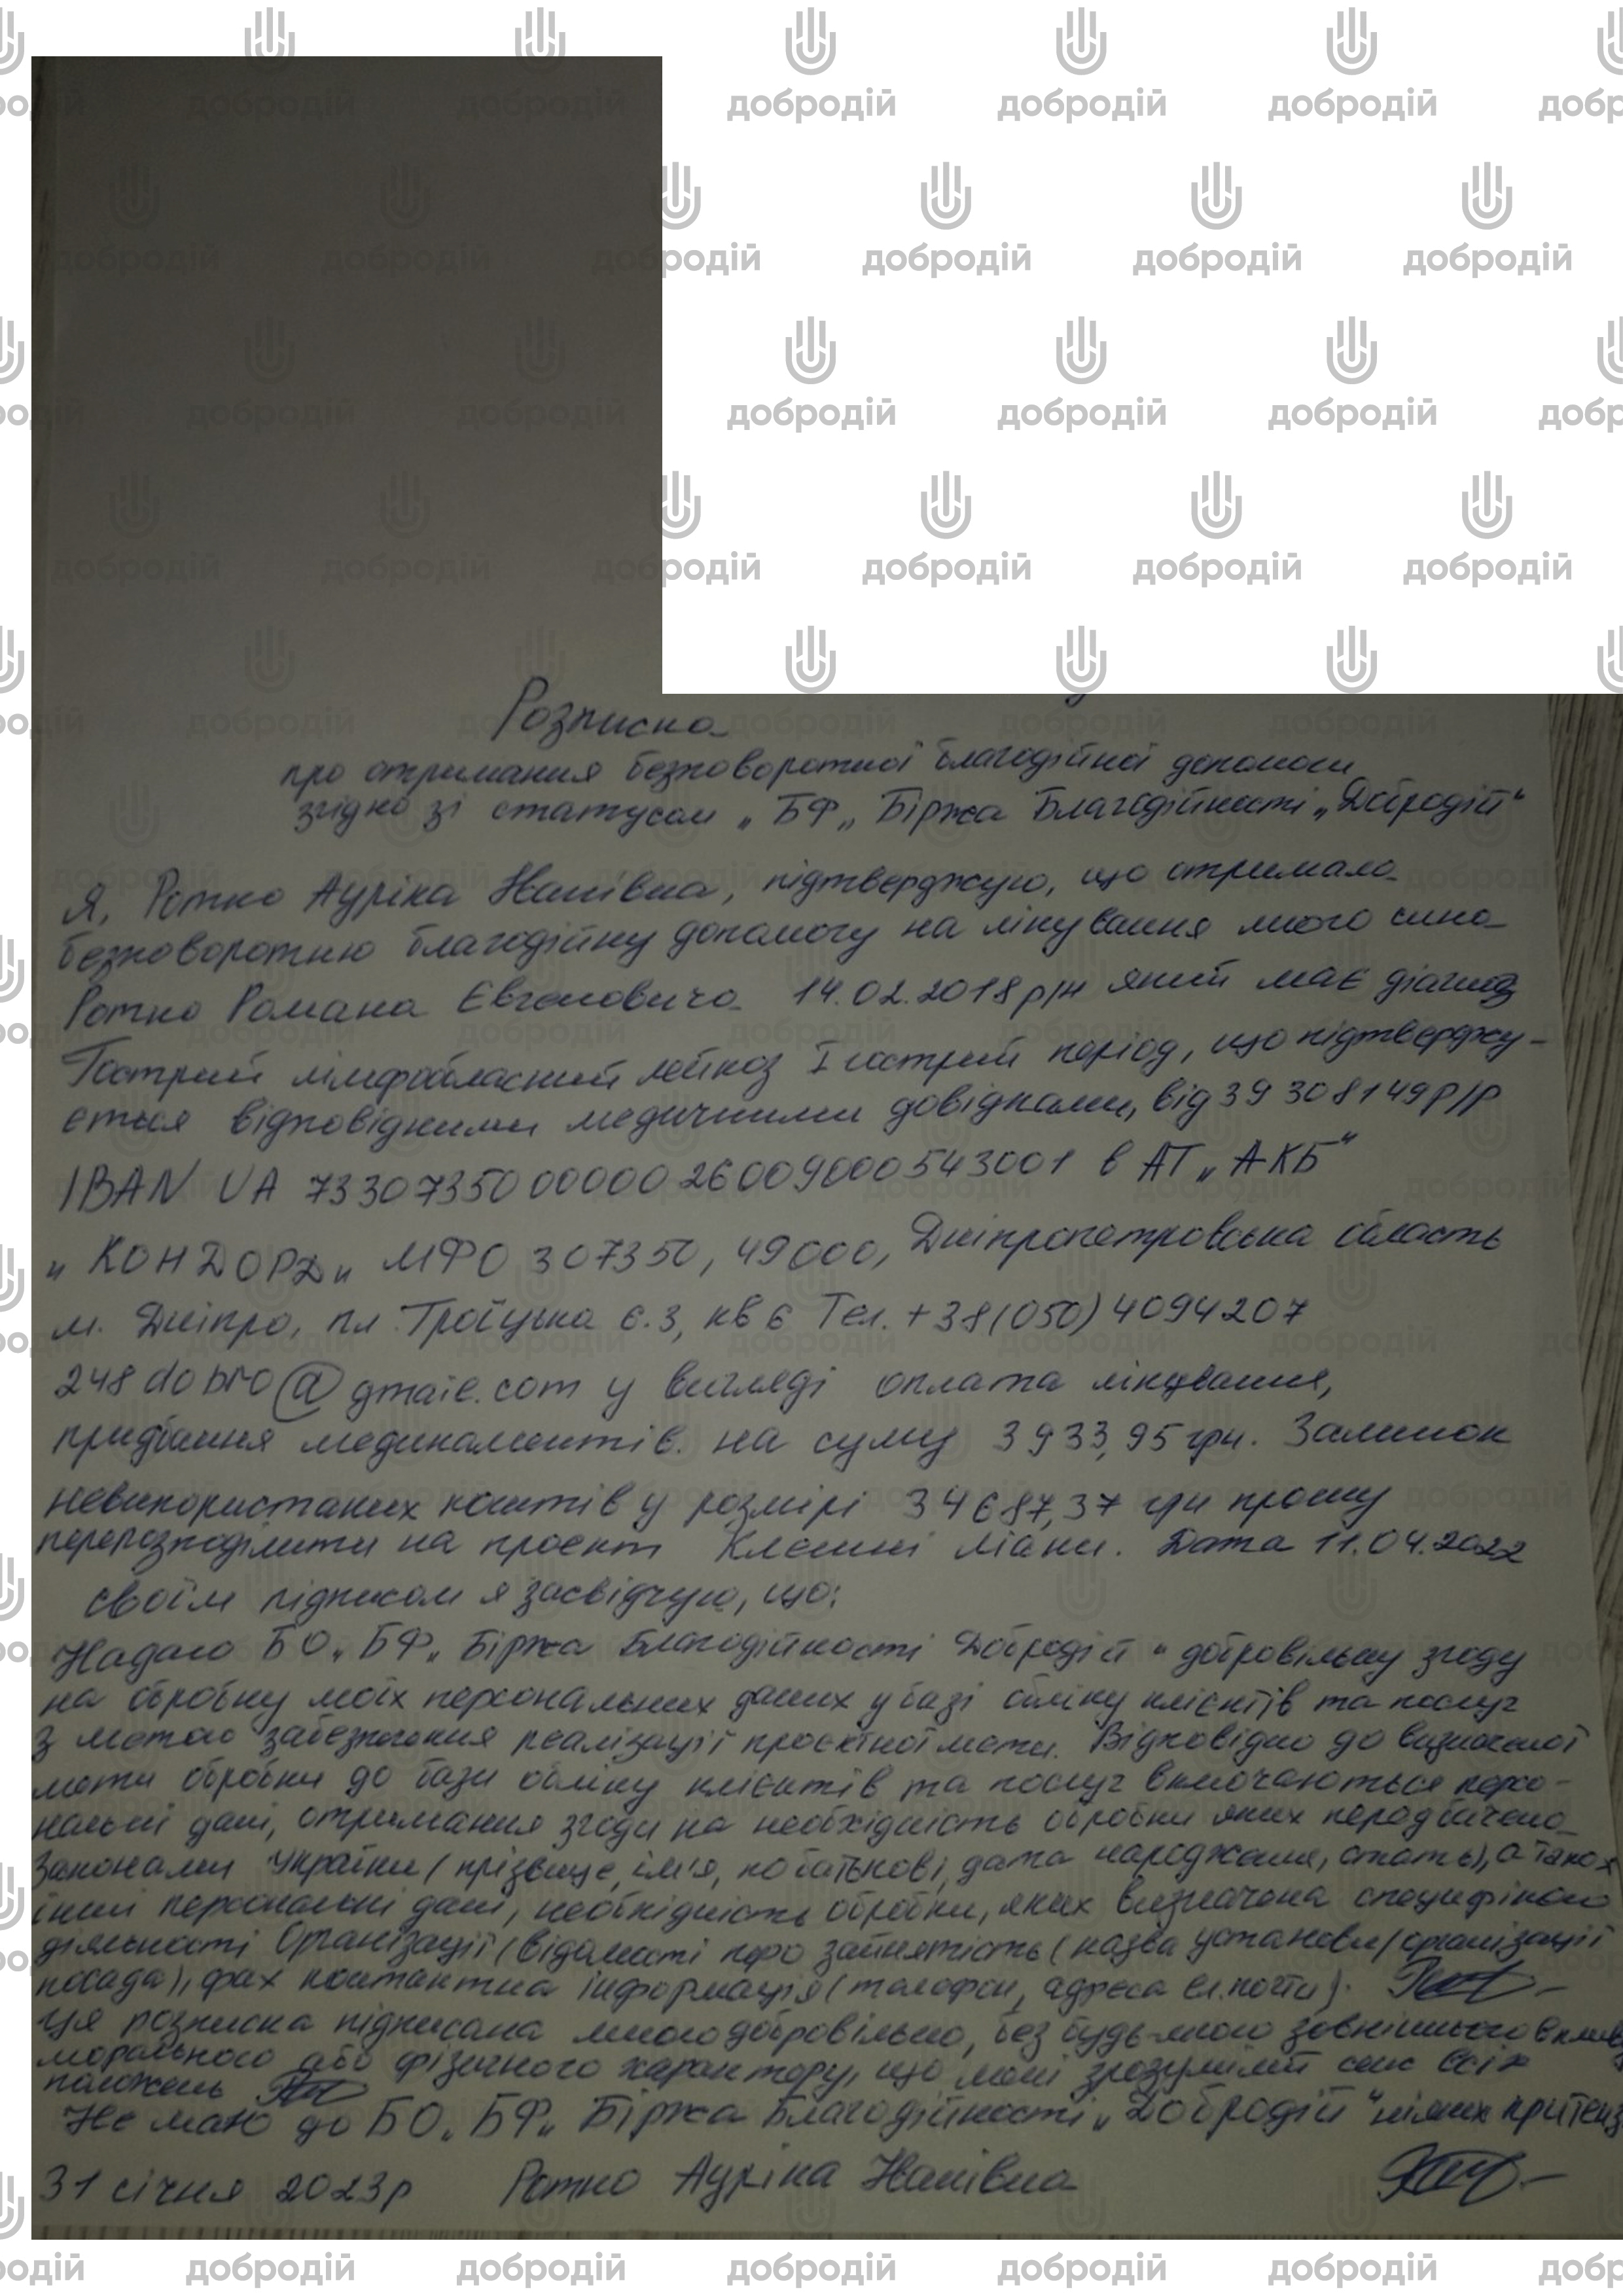 Розписка
про отримання безповоротної благодійної допомоги
згідно зі статусом „БФ„ Біржа Благодійності „Добродій“
Я, Ротко Ауріка Нанівна, підтверджую, що отримала
безповоротню благодійну допомогу на лікування мого сина
Ротко Романа Євгеновича 14.02.2018 р/н який має діагноз
Гострий лімфобласний лейкоз I гострий період, що підтверджу-
ється відповідними медичними довідками, від 39308149 р/р
IBAN UA 73307350 00000 26009000543001 в АТ „АКБ“
„КОНДОРД„ МФО 307350, 49000, Дніпропетровська область
м. Дніпро, пл. Троїцька б.3, кв 6 Тел. +38(050)4094207
248dobro@gmaie.com у вигляді оплата лікування,
придбання медикаментів. на суму 3933,95 грн. Залишок
невикористаних коштів у розмірі 34687,37 грн прошу
перерозподілити на проєкт Клєшні Ліани. Дата 11.04.2022
своїм підписом я засвідчую, що:
Надаю БО„ БФ„ Біржа Благодійності Добродій“ добровільну згоду
на обробку моїх персональних даних у базі обліку клієнтів та послуг
з метою забезпечення реалізації проєктної мети. Відповідно до визначеної
мети обробки до бази обліку клієнтів та послуг включаються персо-
нальні дані, отримання згоди на необхідність обробки яких передбачена
Законами України (прізвище, ім'я, по батькові, дата народження, стать), а також
інші персональні дані, необхідність обробки, яких визначена специфікою
діяльності Організації (відомості про зайнятість (назва установи/організації
посада), фах контактна інформація (телефон, адреса ел.пошти).
Ця розписка підписана мною добровільно, без будь-якого зовнішнього впливу
морального або фізичного характеру, що мені зрозумілий сенс всіх
положень
Не маю до БО„ БФ„ Біржа Благодійності „Добродій“ ніяких претенз
31 січня 2023р Ротко Ауріка Нанівна
добродій